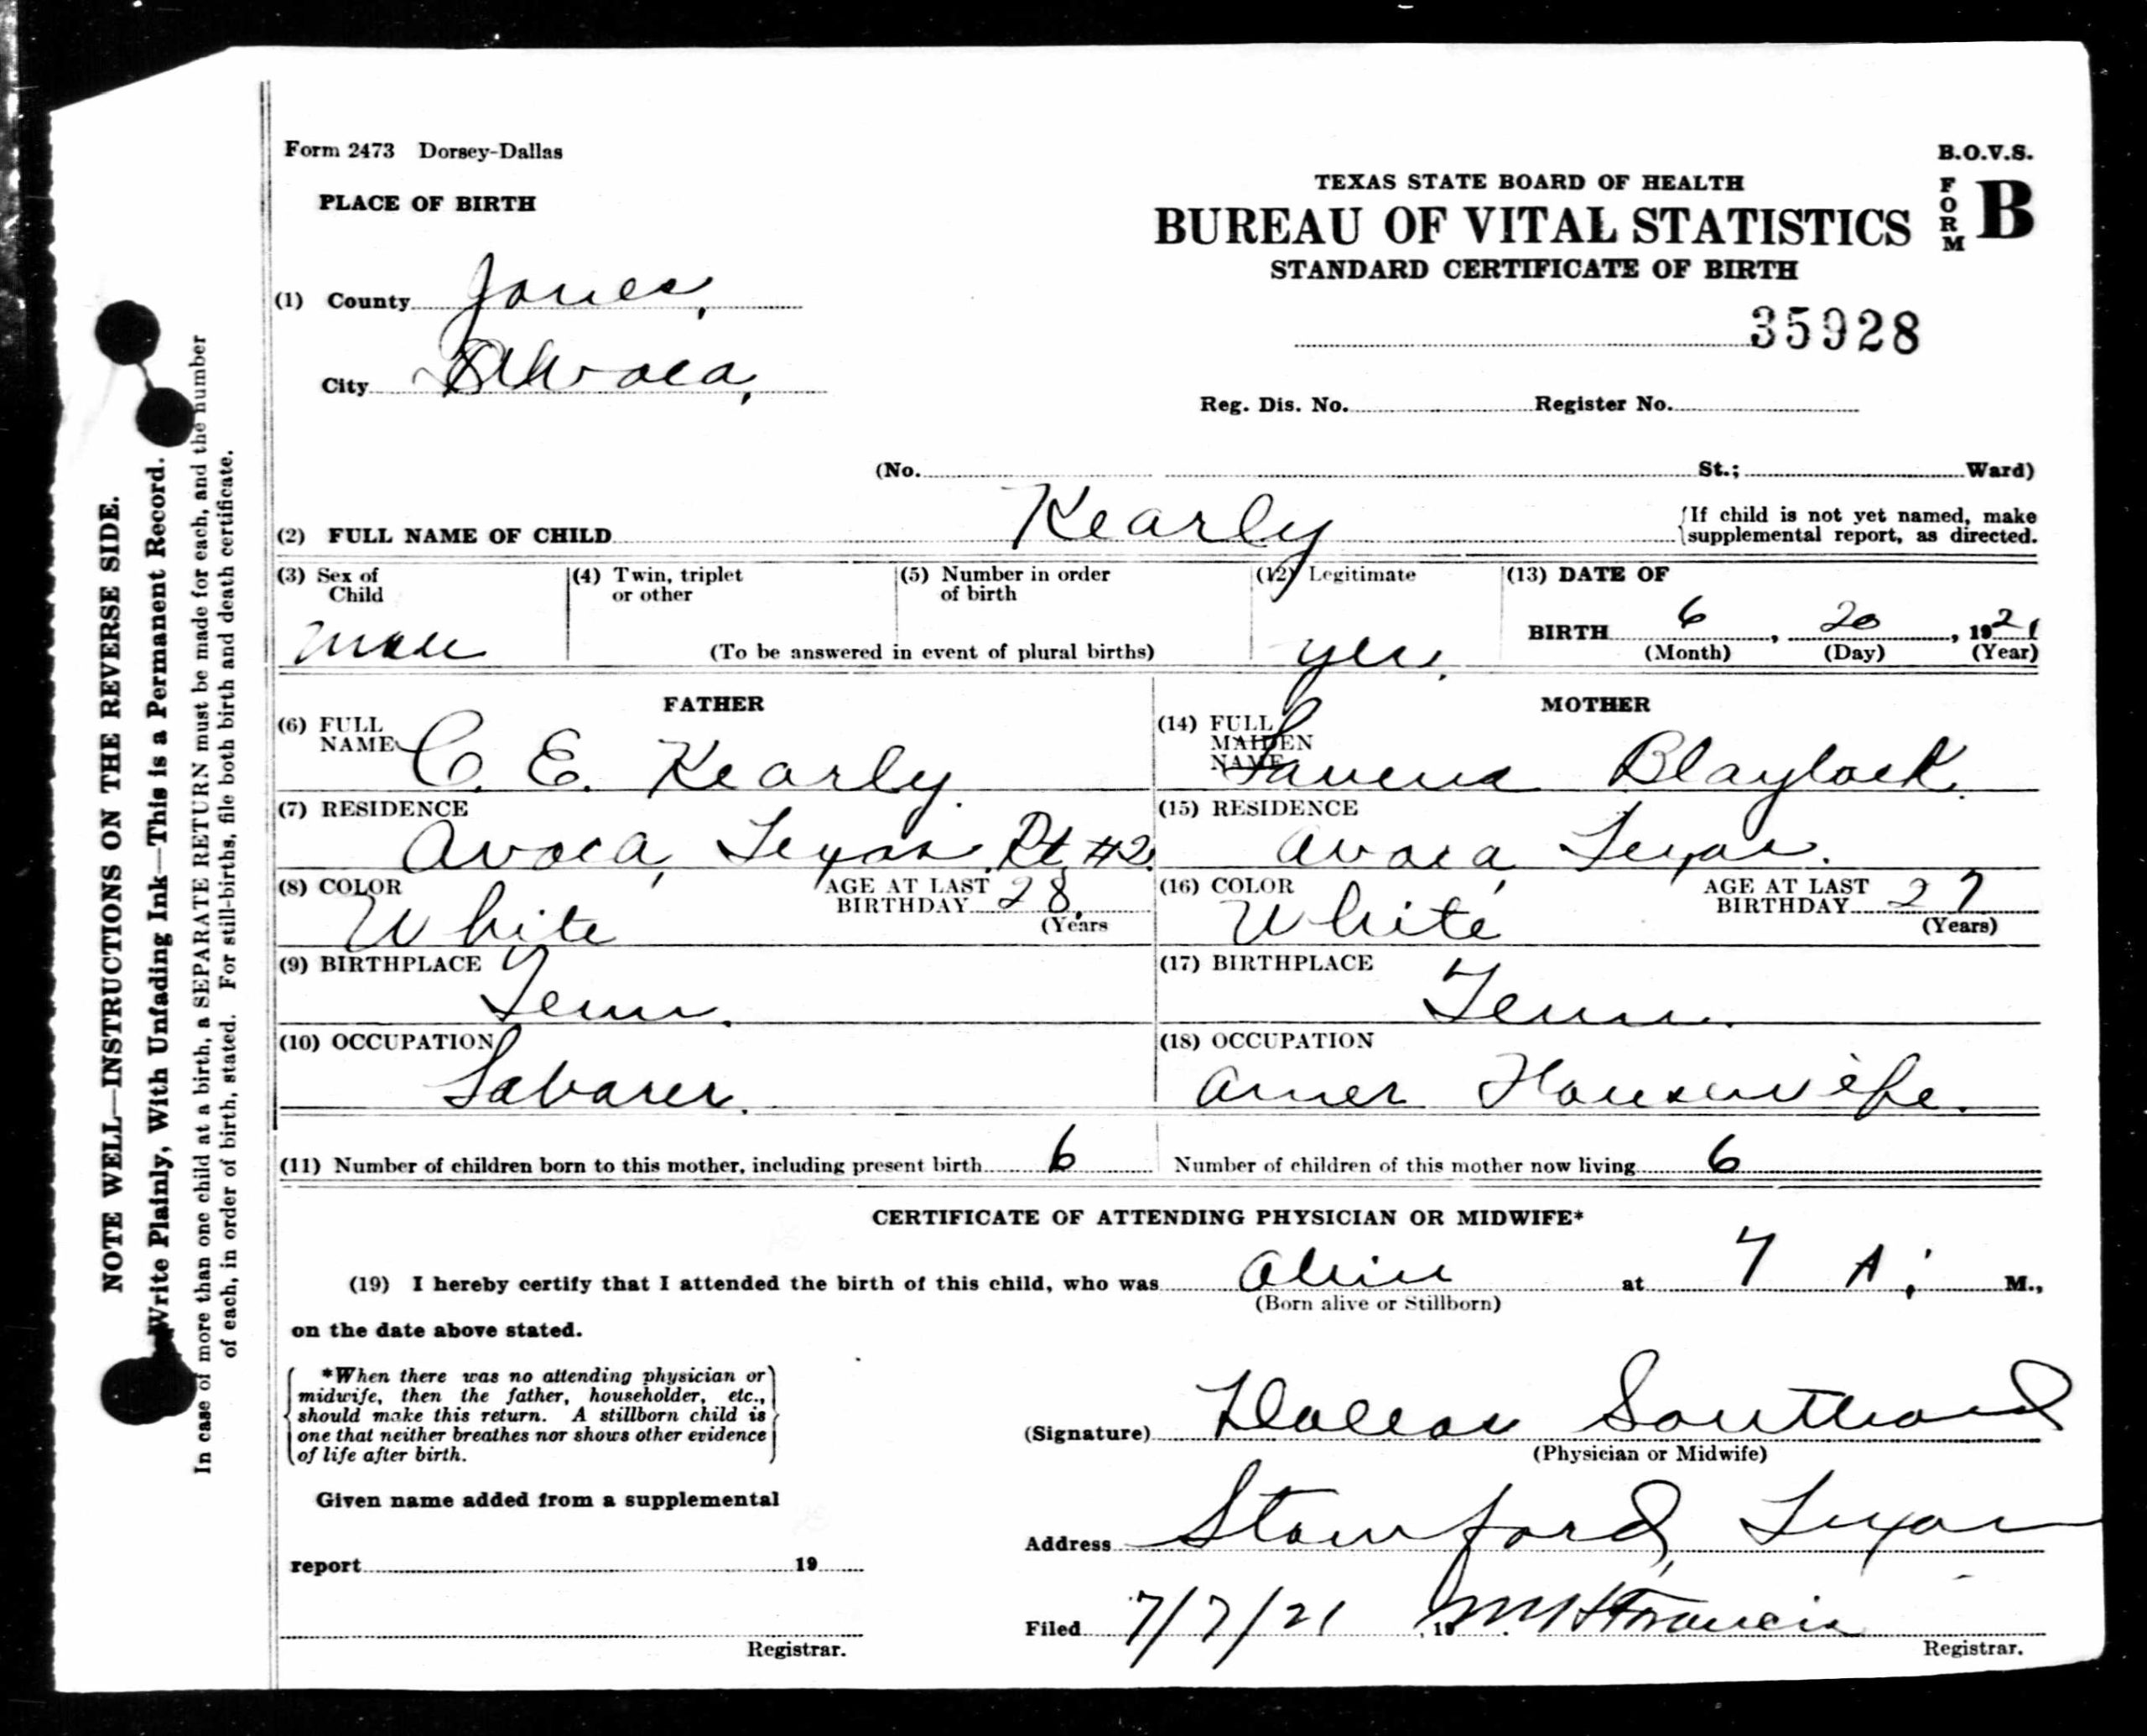 Form 2473 Dorsey-Dallas
B.O.V.S.
FORM B
PLACE OF BIRTH
TEXAS STATE BOARD OF HEALTH
BUREAU OF VITAL STATISTICS
STANDARD CERTIFICATE OF BIRTH
(1) County Jones,
35928
City Avoca,
Reg. Dis. No. Register No.
(No. St.; Ward)
(2) FULL NAME OF CHILD Kearly
{If child is not yet named, make
supplemental report, as directed.
(3) Sex of Child male
(4) Twin, triplet or other
(5) Number in order of birth
(To be answered in event of plural births)
(12) Legitimate yes,
(13) DATE OF
BIRTH 6, 20, 1921
(Month) (Day) (Year)
FATHER
(6) FULL NAME C. E. Kearly.
(7) RESIDENCE
Avoca, Texas, Rt #2.
(8) COLOR White
AGE AT LAST BIRTHDAY 28.
(Years
(9) BIRTHPLACE
Tenn.
(10) OCCUPATION
Laborer.
MOTHER
(14) FULL MAIDEN NAME Blaylock.
(15) RESIDENCE
Avoca, Texas.
(16) COLOR White
AGE AT LAST BIRTHDAY 27
(Years)
(17) BIRTHPLACE
Tenn.
(18) OCCUPATION
Amer Housewife.
(11) Number of children born to this mother, including present birth 6 Number of children of this mother now living 6
CERTIFICATE OF ATTENDING PHYSICIAN OR MIDWIFE*
(19) I hereby certify that I attended the birth of this child, who was Alive at 7 A. M.,
(Born alive or Stillborn)
on the date above stated.
*When there was no attending physician or
midwife, then the father, householder, etc.,
should make this return. A stillborn child is
one that neither breathes nor shows other evidence
of life after birth.
Given name added from a supplemental
report 19
Registrar.
(Signature) Dallas Southard
(Physician or Midwife)
Address Stamford, Texas
Filed 7/7/21, 19 Francis
Registrar.
NOTE WELL—INSTRUCTIONS ON THE REVERSE SIDE.
Write Plainly, With Unfading Ink—This is a Permanent Record.
In case of more than one child at a birth, a SEPARATE RETURN must be made for each, and the number
of each, in order of birth, stated. For still-births, file both birth and death certificate.